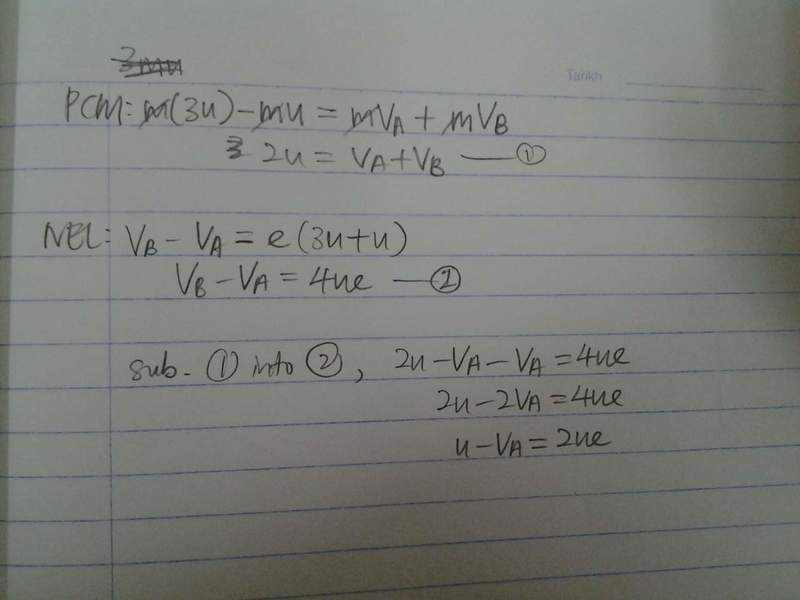 3mu
Tarikh
PCM: m(3u) - mu = mVA + mVB
3 2u = VA + VB — ①
NEL: VB - VA = e(3u+u)
VB - VA = 4ue — ②
sub. ① into ②, 2u - VA - VA = 4ue
2u - 2VA = 4ue
u - VA = 2ue